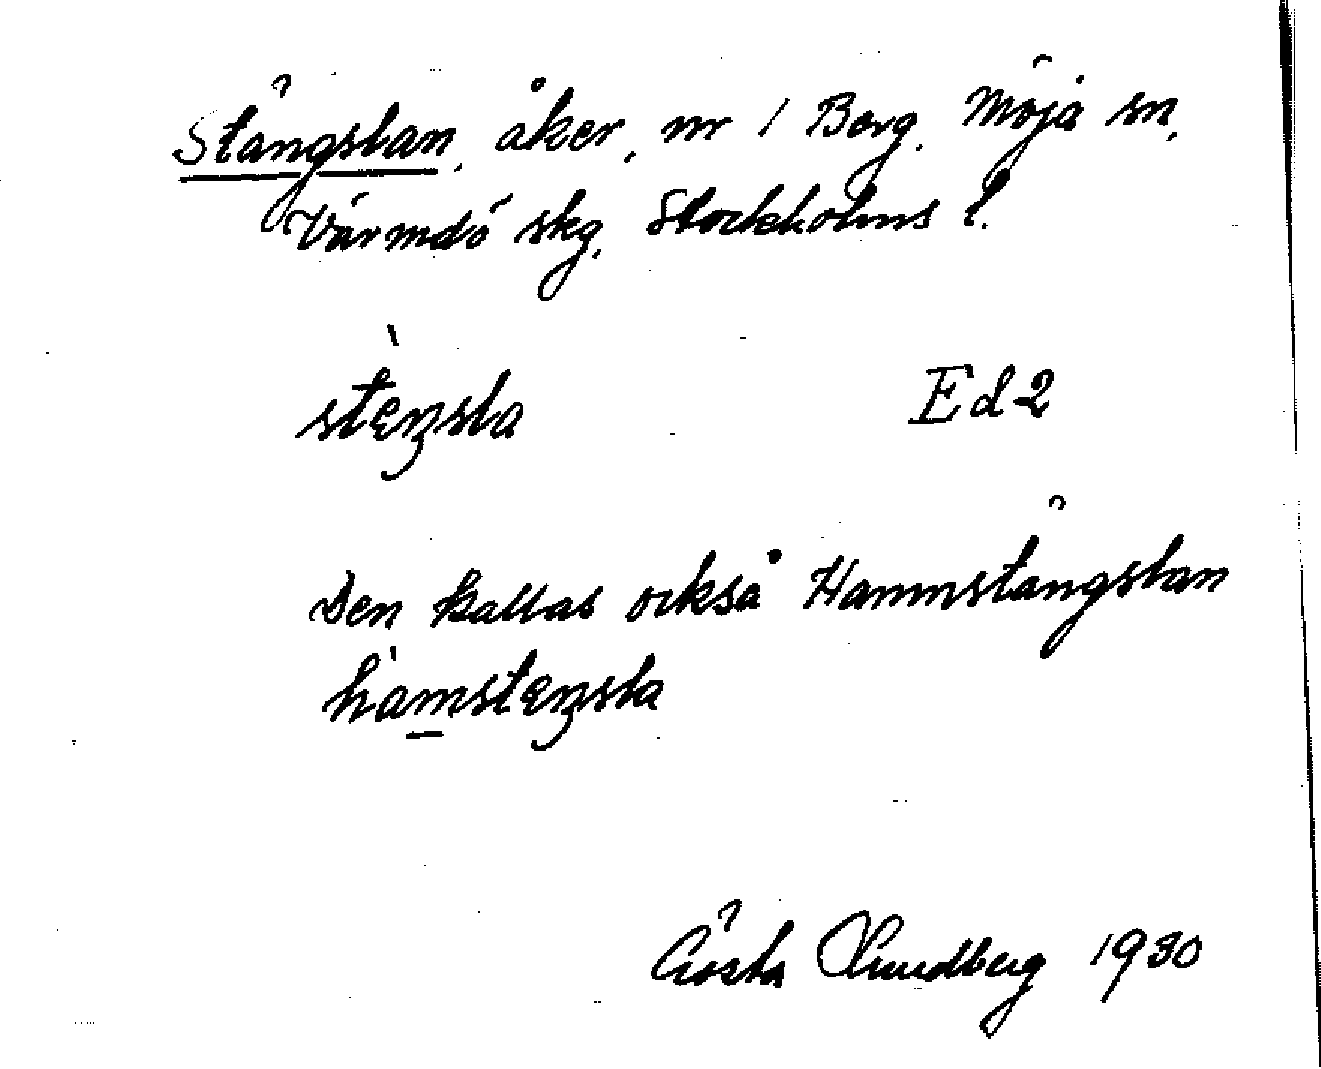 Stängslan, åker, nr 1 Berg, Möja sn,
Värmdö skg, Stockholms l.
stèŋsla Ed 2
Den kallas också Hammstängslan
hàmstɛŋsla
Gösta Lundberg 1930